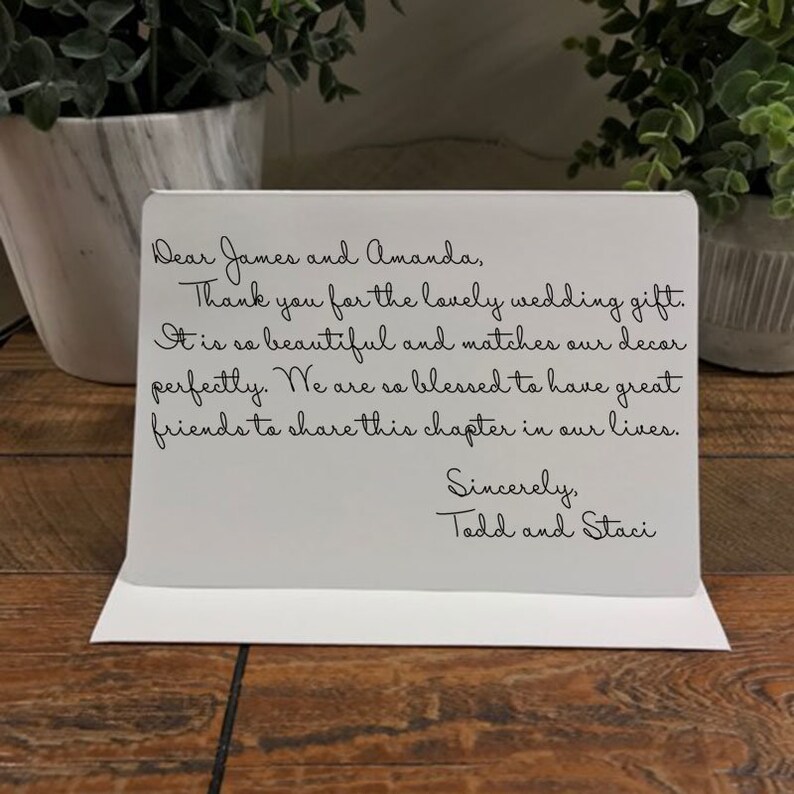 Dear James and Amanda,
Thank you for the lovely wedding gift.
It is so beautiful and matches our decor
perfectly. We are so blessed to have great
friends to share this chapter in our lives.
Sincerely,
Todd and Staci